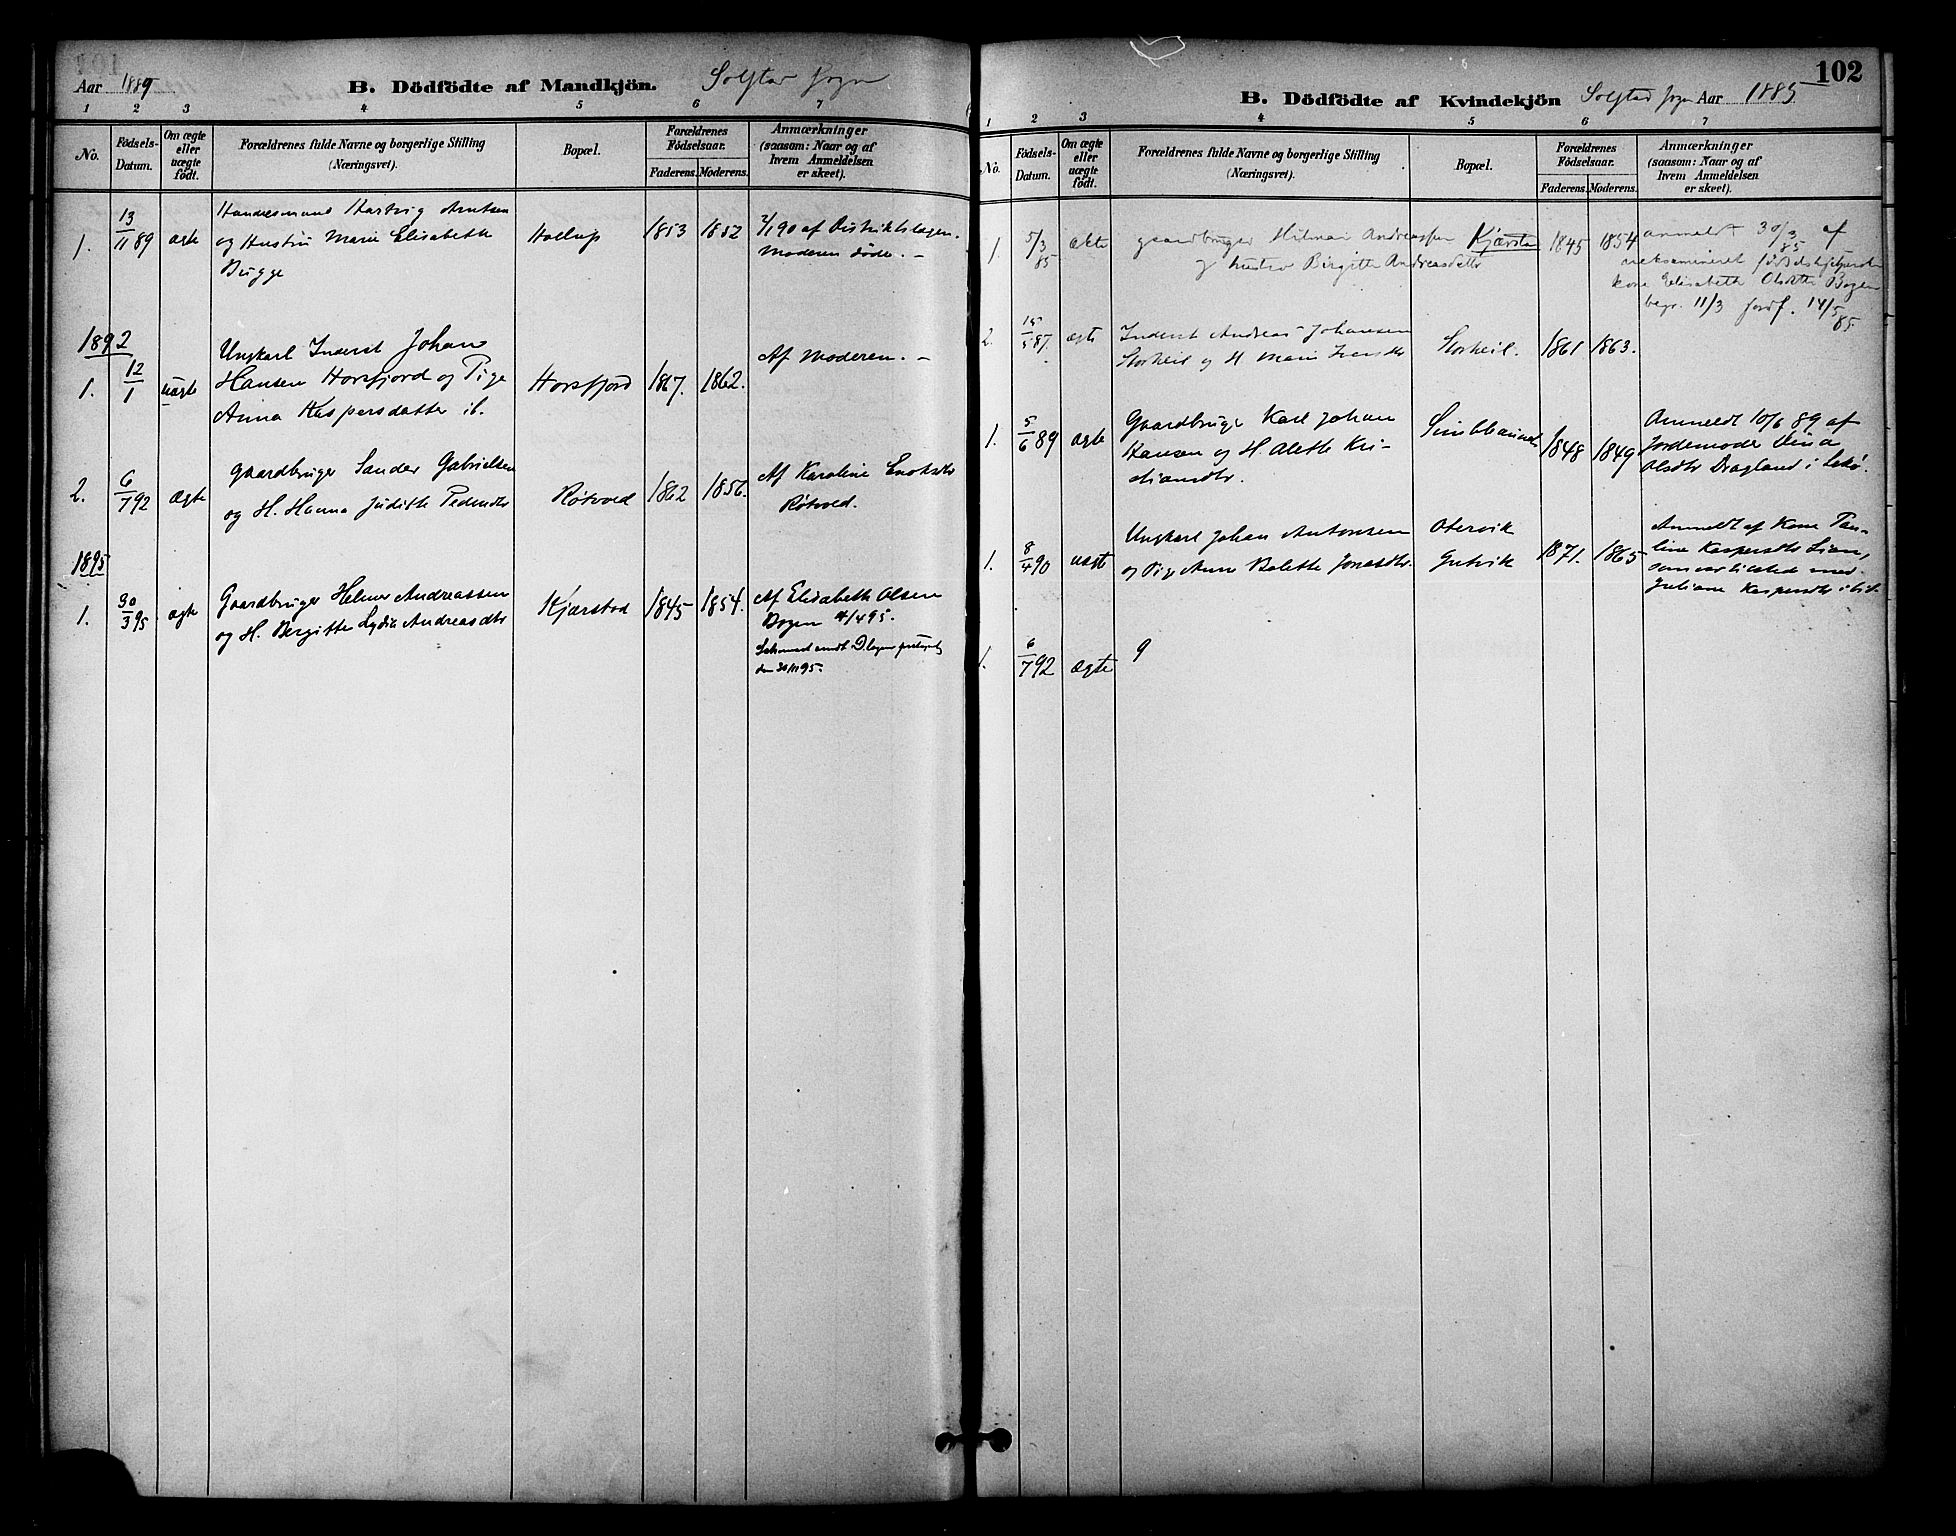 102
Aar 1889 B. Dödfödte af Mandkjön. Solstad Sogn
1 2 3 4 5 6 7
No. Födsels-Datum. Om ægte eller uægte födt. Forældrenes fulde Navne og borgerlige Stilling (Næringsvei). Bopæl. Forældrenes Födselsaar. Faderens. Moderens. Anmærkninger (saasom: Naar og af hvem Anmeldelsen er skeet).
1. 13/11 89 ægte Handelsmand Hartvig Arntsen
og Hustru Marie Elisabeth
Bugge
Hollup 1853 1852
2/1 90 af Distriktslægen.
Moderen døde. –
1892
1. 12/1 uægte Ungkarl Inderst Johan
Hansen Horsfjord og Pige
Anna Kaspersdatter ib.
Horsfjord 1867. 1862.
Af Moderen. –
2. 6/7 92 Ægte Gaardbruger Sander Gabrielsen
og H. Hanna Judithe Pedersdtr
Røtvold 1862 1856.
Af Karoline Enoksdtr
Røtvold.
1895
1. 30/3 95 ægte Gaardbruger Helmer Andreassen
og H. Bergitte Lydia Andreasdtr
Kjærstad 1845 1854.
Af Elisabeth Olsen
Bogen 4/4 95.
den 30/11 95.
B. Dödfödte af Kvindekjön Solstad Sogn Aar 1885
1 2 3 4 5 6 7
No. Födsels-Datum. Om ægte eller uægte födt. Forældrenes fulde Navne og borgerlige Stilling (Næringsvei). Bopæl. Forældrenes Födselsaar. Faderens. Moderens. Anmærkninger (saasom: Naar og af hvem Anmeldelsen er skeet).
1. 5/3 85 ekte gaardbruger Hilmar Andreassen
og hustro Birgitte Andreasdattr
Kjærstad 1845 1854
anmeldt 30/3 85 af
ueksamineret fødselshjelperske
kone Elisabeth Olsdtr Bogen
begr. 11/3 jordf. 14/5 85.
2. 15/5 87. ægte Inderst Andreas Johansen
Storheil og H. Marie Iversdtr
Storheil. 1861 1863.
1. 5/6 89 ægte Gaardbruger Karl Johan
Hansen og H. Alette Kri-
stiansdtr.
1848 1849
Anmeldt 10/6 89 af
Jordemoder Dina
Olsdtr Dragland i Lekø.
1. 8/4 90 uægte Ungkarl Johan Antonsen
og Pige Anne Bolette Jonasdtr.
Otervik
Gutvik 1871. 1865
Anmeldt af Kone Pau-
line Kaspersdtr Lian,
som var tilstede med
Juliane Kaspersdtr ibid.
1. 6/7 92 Ægte 9